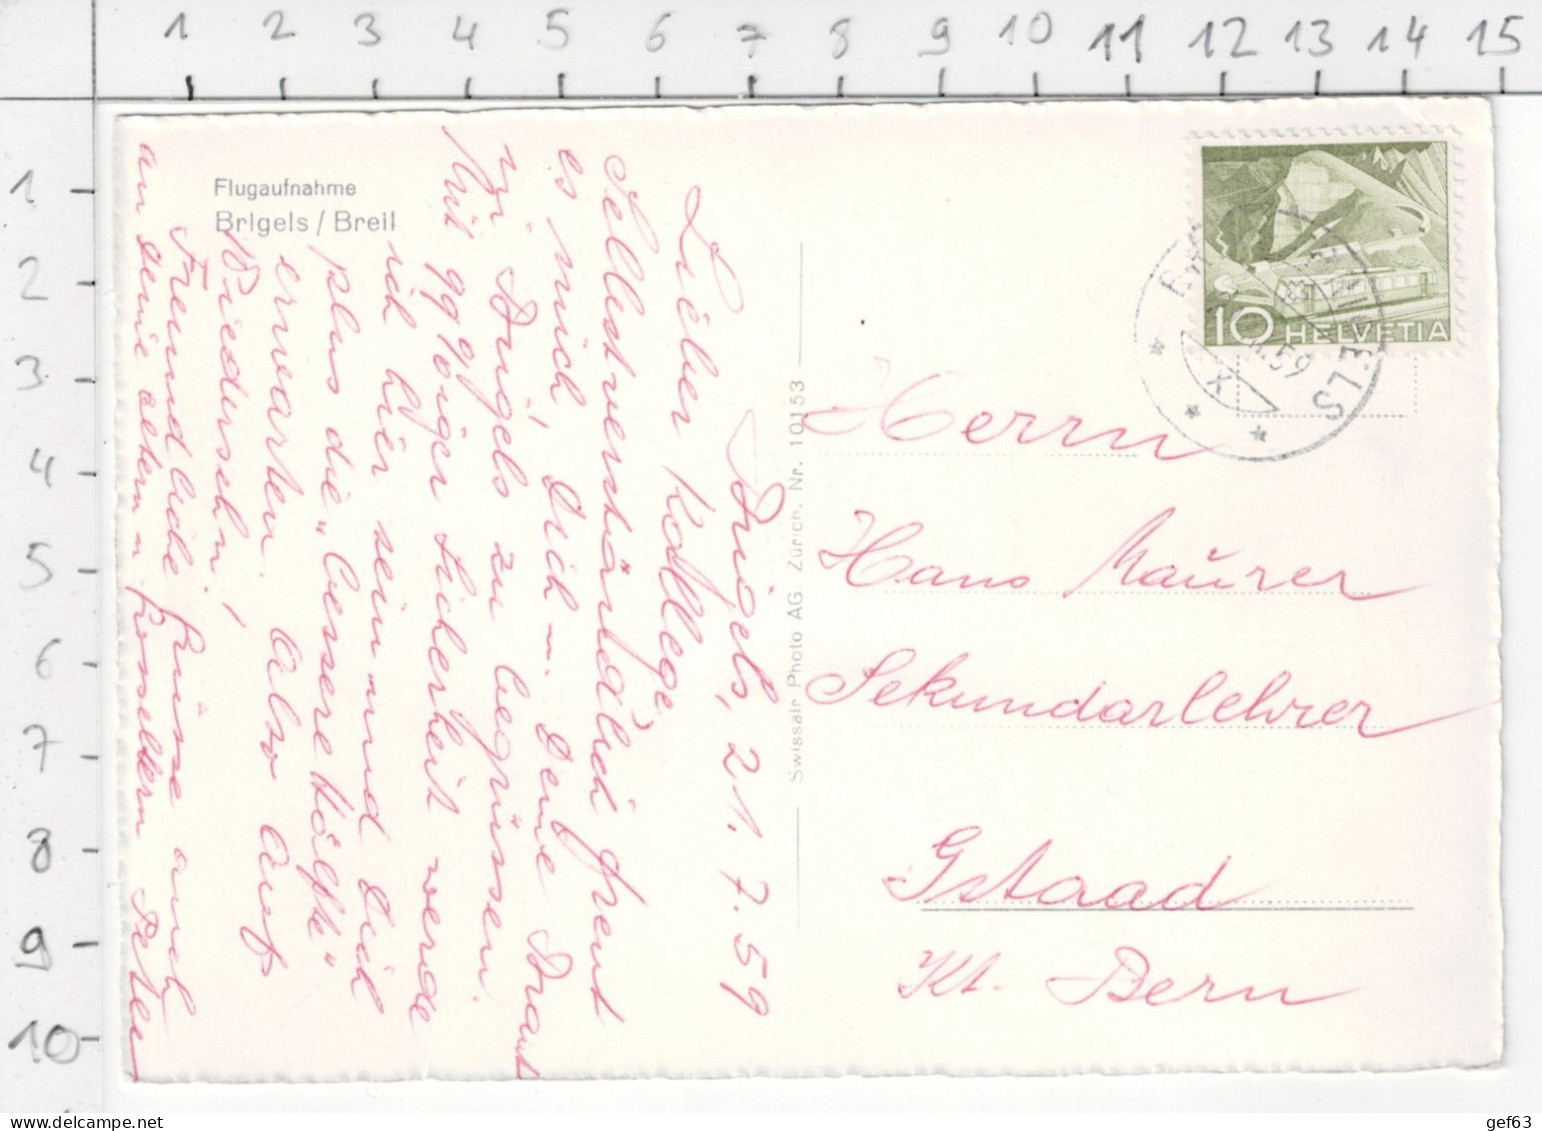 1 2 3 4 5 6 7 8 9 10 11 12 13 14 15
1
2
3
4
5
6
7
8
9
10
Flugaufnahme
Brigels / Breil
Brigels, 21. 7. 59
Lieber Kollege,
Selbstverständlich freut
es mich, Dich u. Deine Braut
in Brigels zu begrüssen.
Mit 99%iger Sicherheit werde
ich hier sein und Dich
plus die „bessere Hälfte“
erwarten. Also auf
Wiedersehn!
Freundliche Grüsse auch
an Deine Schwiegereltern Peter
Swissair Photo AG. Zürich. Nr. 10153
10 HELVETIA
BRIGELS
59
X
Herrn
Hans Maurer
Sekundarlehrer
Gstaad
Kt. Bern
gef63